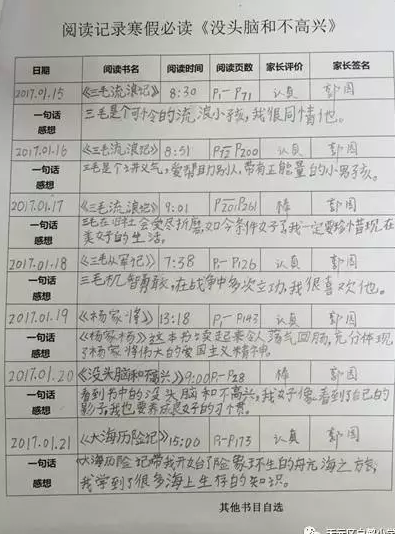 阅读记录寒假必读《没头脑和不高兴》
日期 阅读书名 阅读时间 阅读页数 家长评价 家长签名
2017.01.15 《三毛流浪记》 8:30 P1-P71 认真 郭园
一句话感想 三毛是个可怜的流浪小孩,我很同情他。
2017.01.16 《三毛流浪记》 8:51 P72 P200 认真 郭园
一句话感想 三毛是个讲义气,爱帮助别人,带有正能量的小男子孩。
2017.01.17 《三毛流浪记》 9:01 P201 P261 棒 郭园
一句话感想 三毛在旧社会受尽折磨,如今条件好了,我一定要珍惜现在
美好的生活。
2017.01.18 《三毛从军记》 7:38 P1-P126 认真 郭园
一句话感想 三毛机智勇敢,在战争中多次立功,我很喜欢他。
2017.01.19 《杨家将》 13:18 P1-P143 认真 郭园
一句话感想 《杨家将》这本书读起来令人荡气回肠,充分体现
了杨家将伟大的爱国主义精神。
2017.01.20 《没头脑和不高兴》 9:00 P1-P28 棒 郭园
一句话感想 看到书中的没头脑和不高兴,我好像看到了自己的
影子,我也要养成良好的习惯。
2017.01.21 《大海历险记》 15:00 P1-P173 认真 郭园
一句话感想 大海历险记带我开始了险象环生的航海之旅,
我学到了很多海上生存的知识。
其他书目自选